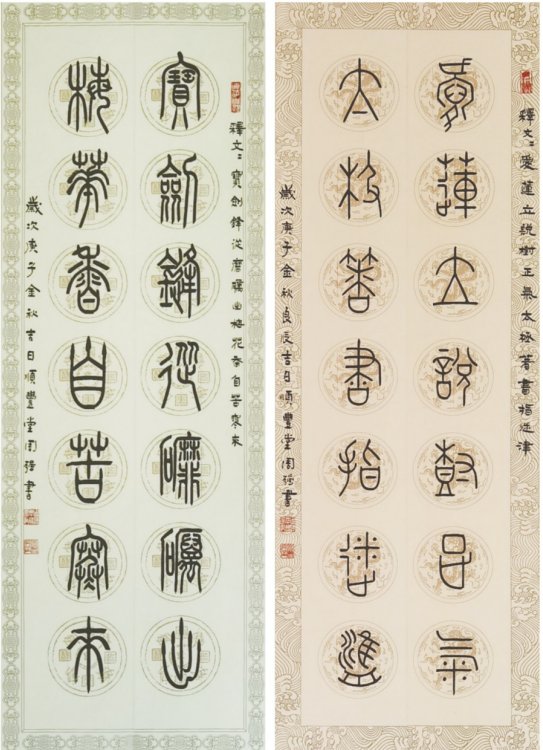 釋文：愛蓮立說樹正氣太極著書指迷津
愛蓮立說樹正氣
太極著書指迷津
歲次庚子金秋良辰吉日順豐堂周強書
釋文：寶劍鋒從磨礪出梅花香自苦寒來
寶劍鋒從磨礪出
梅華香自苦寒來
歲次庚子金秋吉日順豐堂周強書